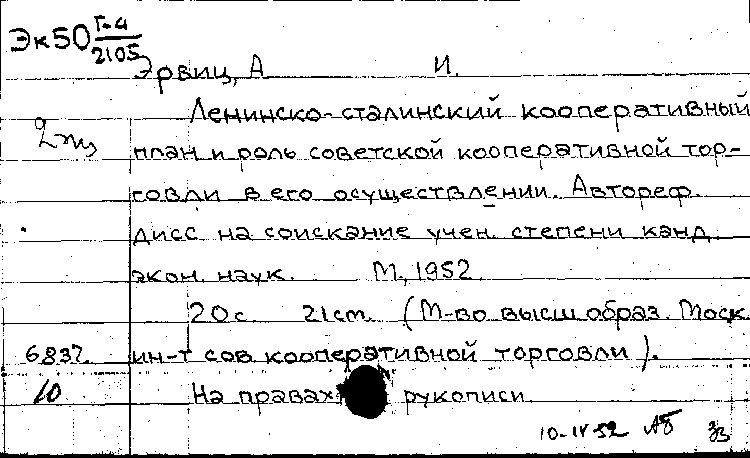 Эк50 Г-4
2105
Эрвиц, А И.
Ленинско-сталинский кооперативный
план и роль советской кооперативной тор-
говли в его осуществлении. Автореф.
дисс на соискание учен. степени канд.
экон. наук. М., 1952.
20с. 21см. (М-во высш образ. Моск.
6837. ин-т сов кооперативной торговли).
10 На правах рукописи
10-IV-52